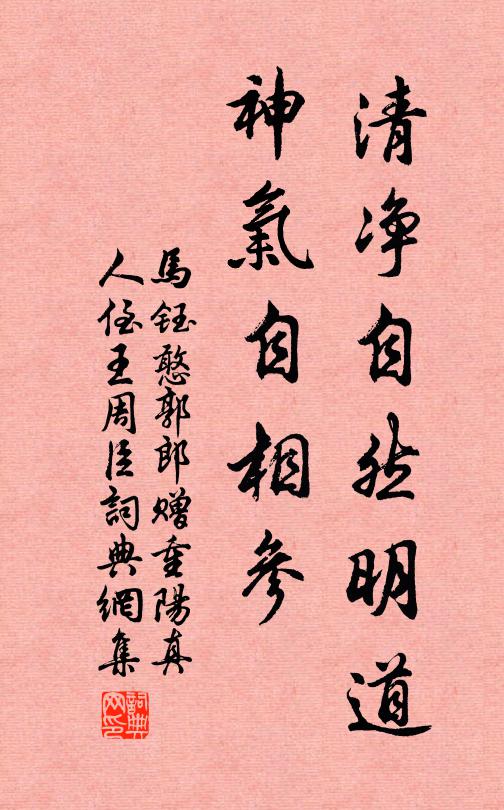 清净自然明道
神氣自相參
馬鈺憨郭郎贈重陽真
人侄王周臣詞典網集
詞典
网印